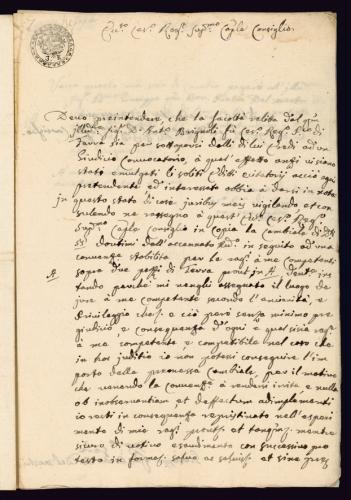 Ecc.so Ces.o Reg.o Sup.mo Cap.le Consiglio.
Devo preintendere, che la facoltà relita dal qm
Illmo sig.r D.r Brignoli fù Ces.o Reg.o di
Favra sia per sottoporsi dalli di lui Credi ad un
Giudicio Convocatorio, a qual' effetto anzi vi siano
stati emulgati li soliti Editi citatorij acciò ogni
pretendente ed interessato abbia à darsi in nota
in questo stato di cose juribus meis vigilando et con
sulendo ne rassegno à quest' Ecc.so Ces.o Reg.o
Sup.mo Cap.le Consiglio in copia la cambiale di
dovutimi dall' accennato in seguito ad una
convenzo stabilita per le rag.i à me competenti
A. sopra due pezzi di Terra prout in A. ins
tando perché mi venghi assegnato il luogo de
jure à me competente secondo l'anianità, e
Privileggio che e ciò però senza minimo pre
giudicio, e consequenza d'ogni e qual sisia rag.e
à me competente, e compatibile nel caso che
in hoc juditio io non potessi conseguire l'im
porto della promessa Cambiale, per il motivo
che venendo la convenz.e à rendersi irrita e nulla
ob inobservantiam et defectum adimplementi
io resti in consequenza repristinato nell' esperi
mento di mie rag.i mentre
sicuro di votivo esaudimento con successivo pro
testo in forma salvo et salvis et sine